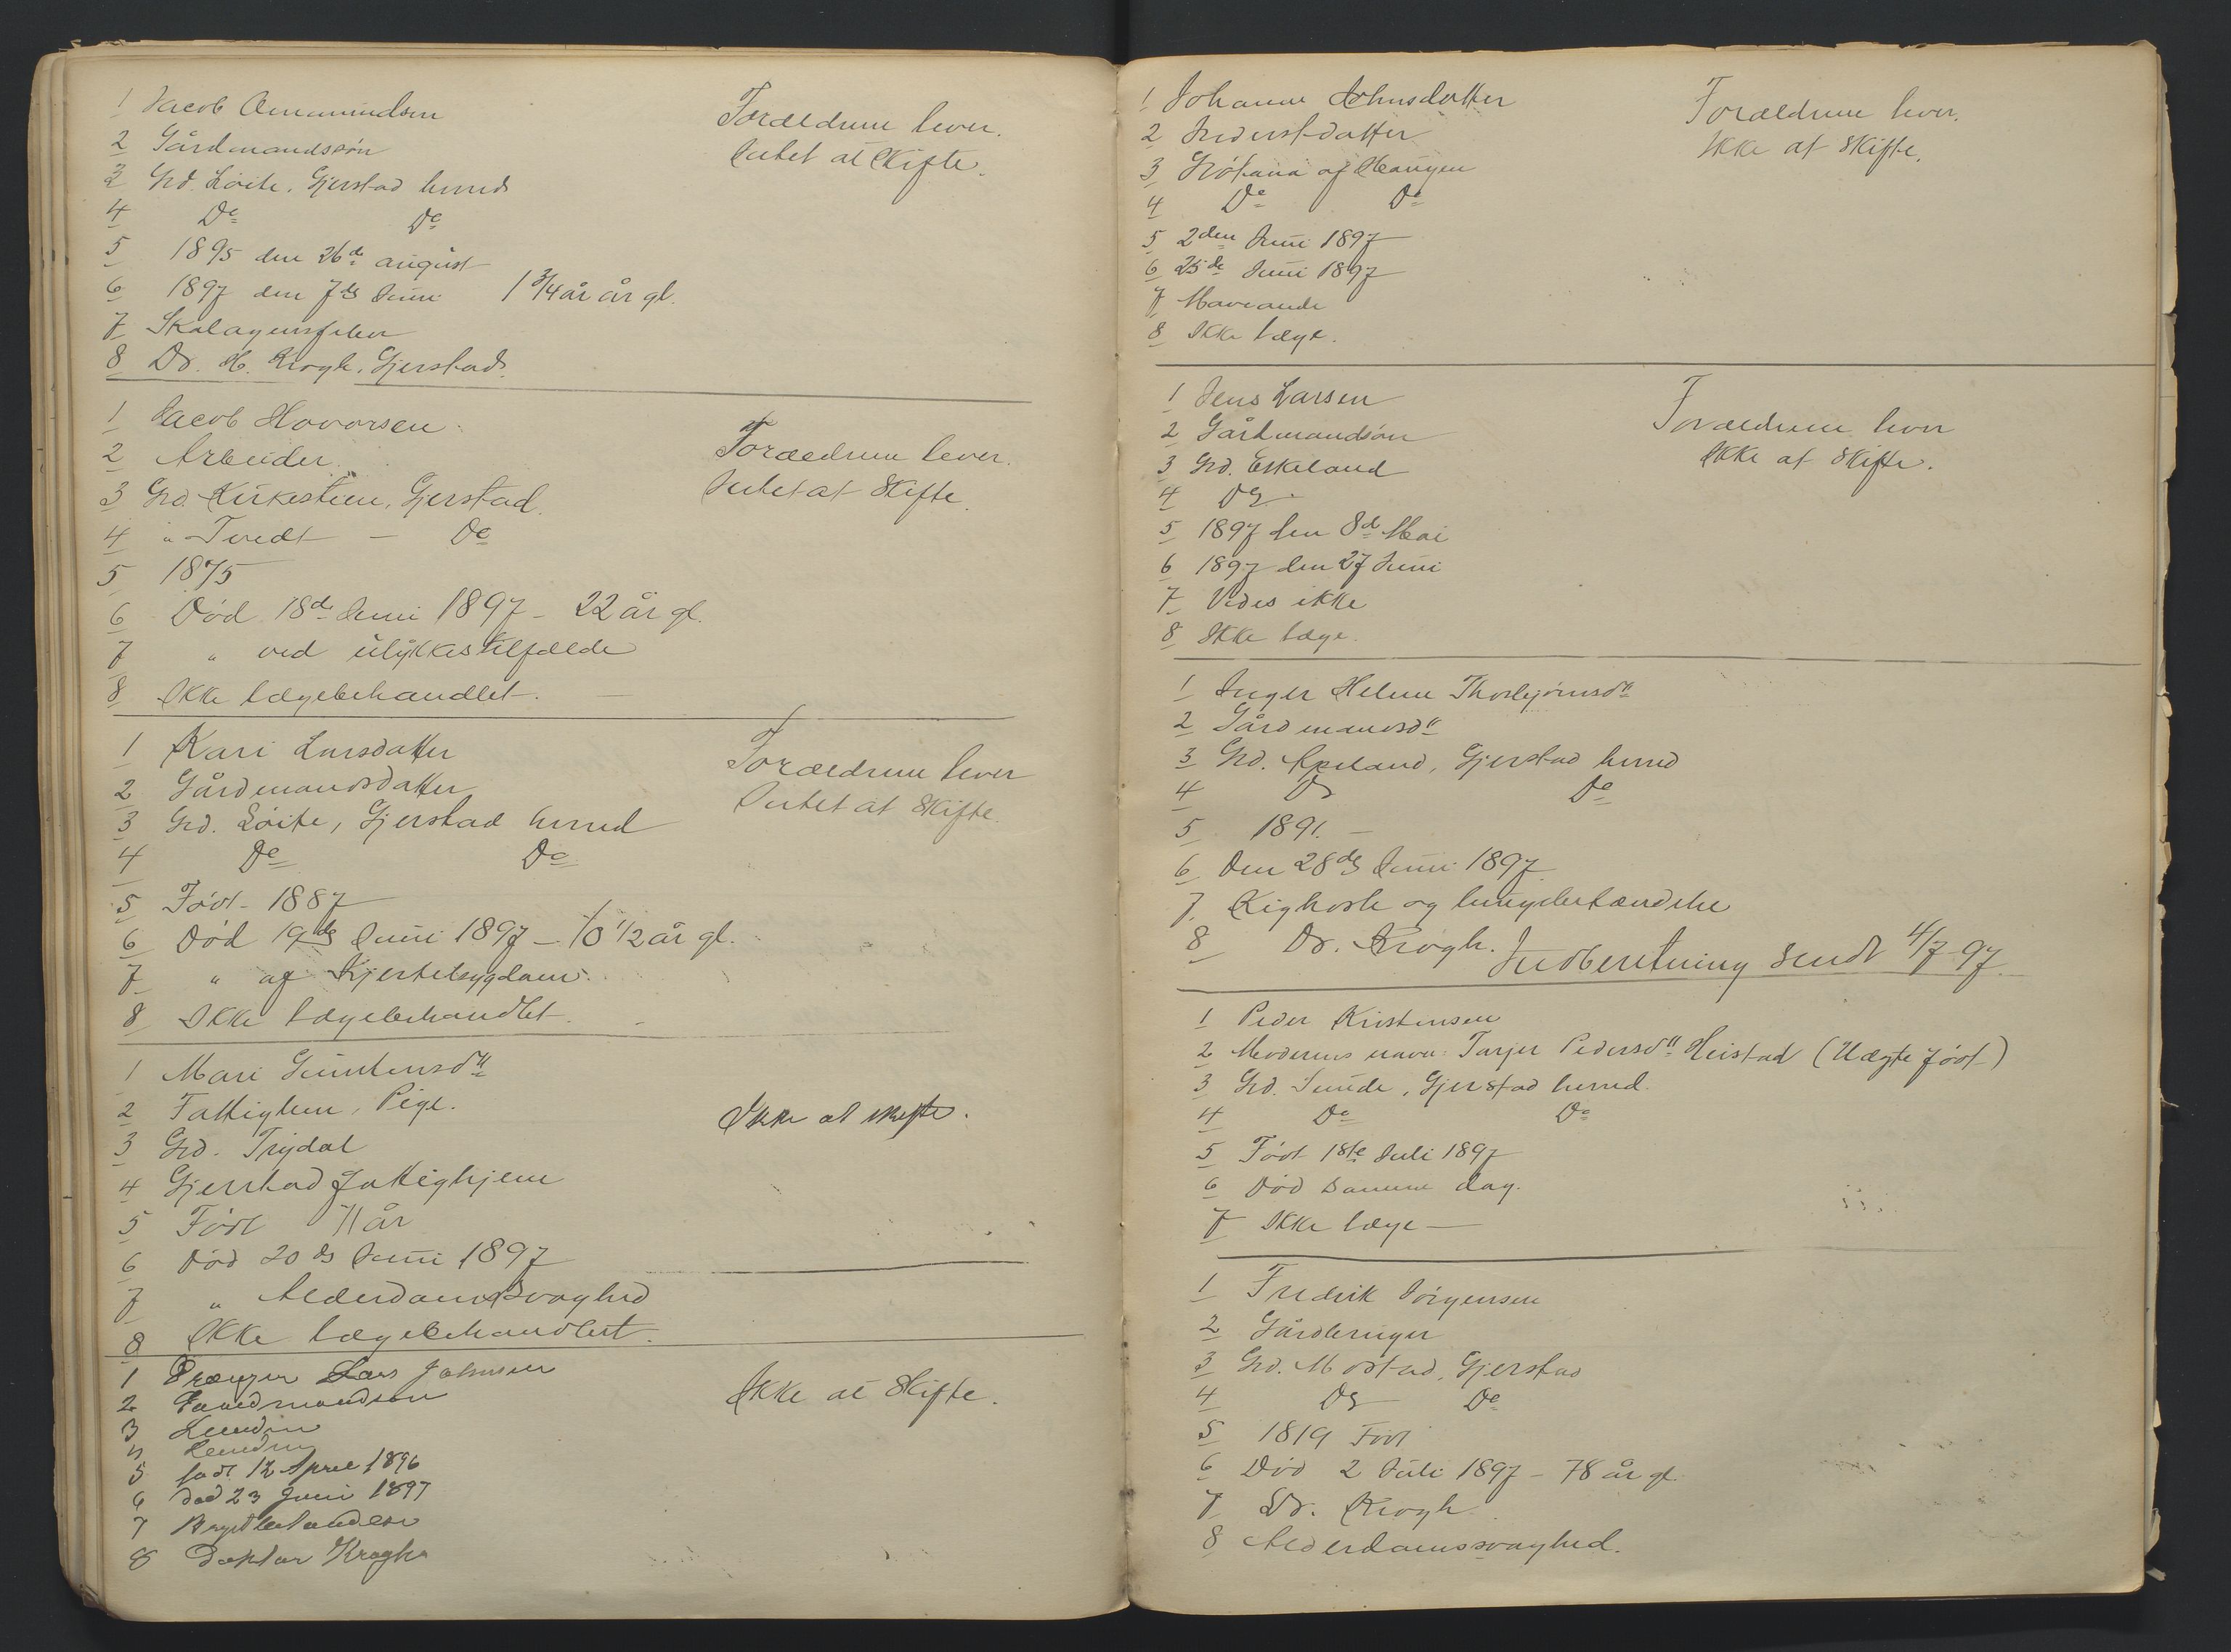 1 Jacob Amundsen
2 Gårdmandssön
3 Grd. Löite, Gjerstad herred
4 Do Do
5 1895 den 26de august
6 1897 den 7de Juni 1 3/4 år år gl.
7 Skalagensfeber
8 Dr. H. Krogh, Gjerstad.
Forældrene lever.
Intet at Skifte.
1 Jacob Hovorsen
2 Arbeider
3 Grd. Kirkestien, Gjerstad.
4 " Tvedt — Do
5 1875
6 Död 18de Juni 1897 – 22 år gl.
7 " ved ulykkestilfælde
8 Ikke lægebehandlet. —
Forældrene lever.
Intet at Skifte.
1 Kari Larsdatter
2 Gårdmandsdatter
3 Grd. Löite, Gjerstad herred
4 Do Do
5 Födt 1887
6 Död 19de Juni 1897 – 10 1/2 år gl.
7 " af Kjertelsygdom.
8 Ikke lægebehandlet.
Forældrene lever
Intet at Skifte.
1 Mari Guntensdtr
2 Fattiglem, Pige.
3 Grd. Trydal
4 Gjerstad Fattighjem
5 Födt 71 år
6 Död 20de Juni 1897
7 " Alderdomssvaghed
8 Ikke lægebehandlert.
Ikke at skifte.
1 Lars Johnsen
2 Gaardmandsön
3
4
5 född 12 April 1896
6 död 23 Juni 1897
7 Brystbetændelse
8 Doktor Krogh
Ikke at Skifte.
1 Johanne Johnsdatter
2 Inderstdatter
3 Grótana af Haugen
4 Do Do
5 2den Juni 1897
6 25de Juni 1897
7 Maveonde
8 Ikke læge.
Forældrene lever.
Ikke at Skifte.
1 Jens Larsen
2 Gårdmandsön
3 Grd. Eskeland
4 Do
5 1897 den 8de Mai
6 1897 den 27 Juni
7 Vides ikke
8 Ikke læge.
Forældrene lever
Ikke at Skifte.
1 Inger Helene Thorbjörnsdtr
2 Gårdmandsdtr
3 Grd. Apeland, Gjerstad herred
4 Do Do
5 1891. —
6 Den 28de Juni 1897
7 Kighoste og lungebetændelse
8 Dr. Krogh.
Indberetning sendt 4/7 97.
1 Peder Kristensen
2 Moderens navn: Tarjer Pedersdtr Heistad (Uægte född)
3 Grd. Sunde, Gjerstad herred.
4 Do Do
5 Födt 18de Juli 1897
6 Död samme dag.
7 Ikke læge —
1 Fredrik Jörgensen
2 Gårdbruger
3 Grd. Mostad, Gjerstad
4 Do Do
5 1819 Födt
6 Död 2 Juli 1897 – 78 år gl.
7 Dr. Krogh
8 Alderdomssvaghed.